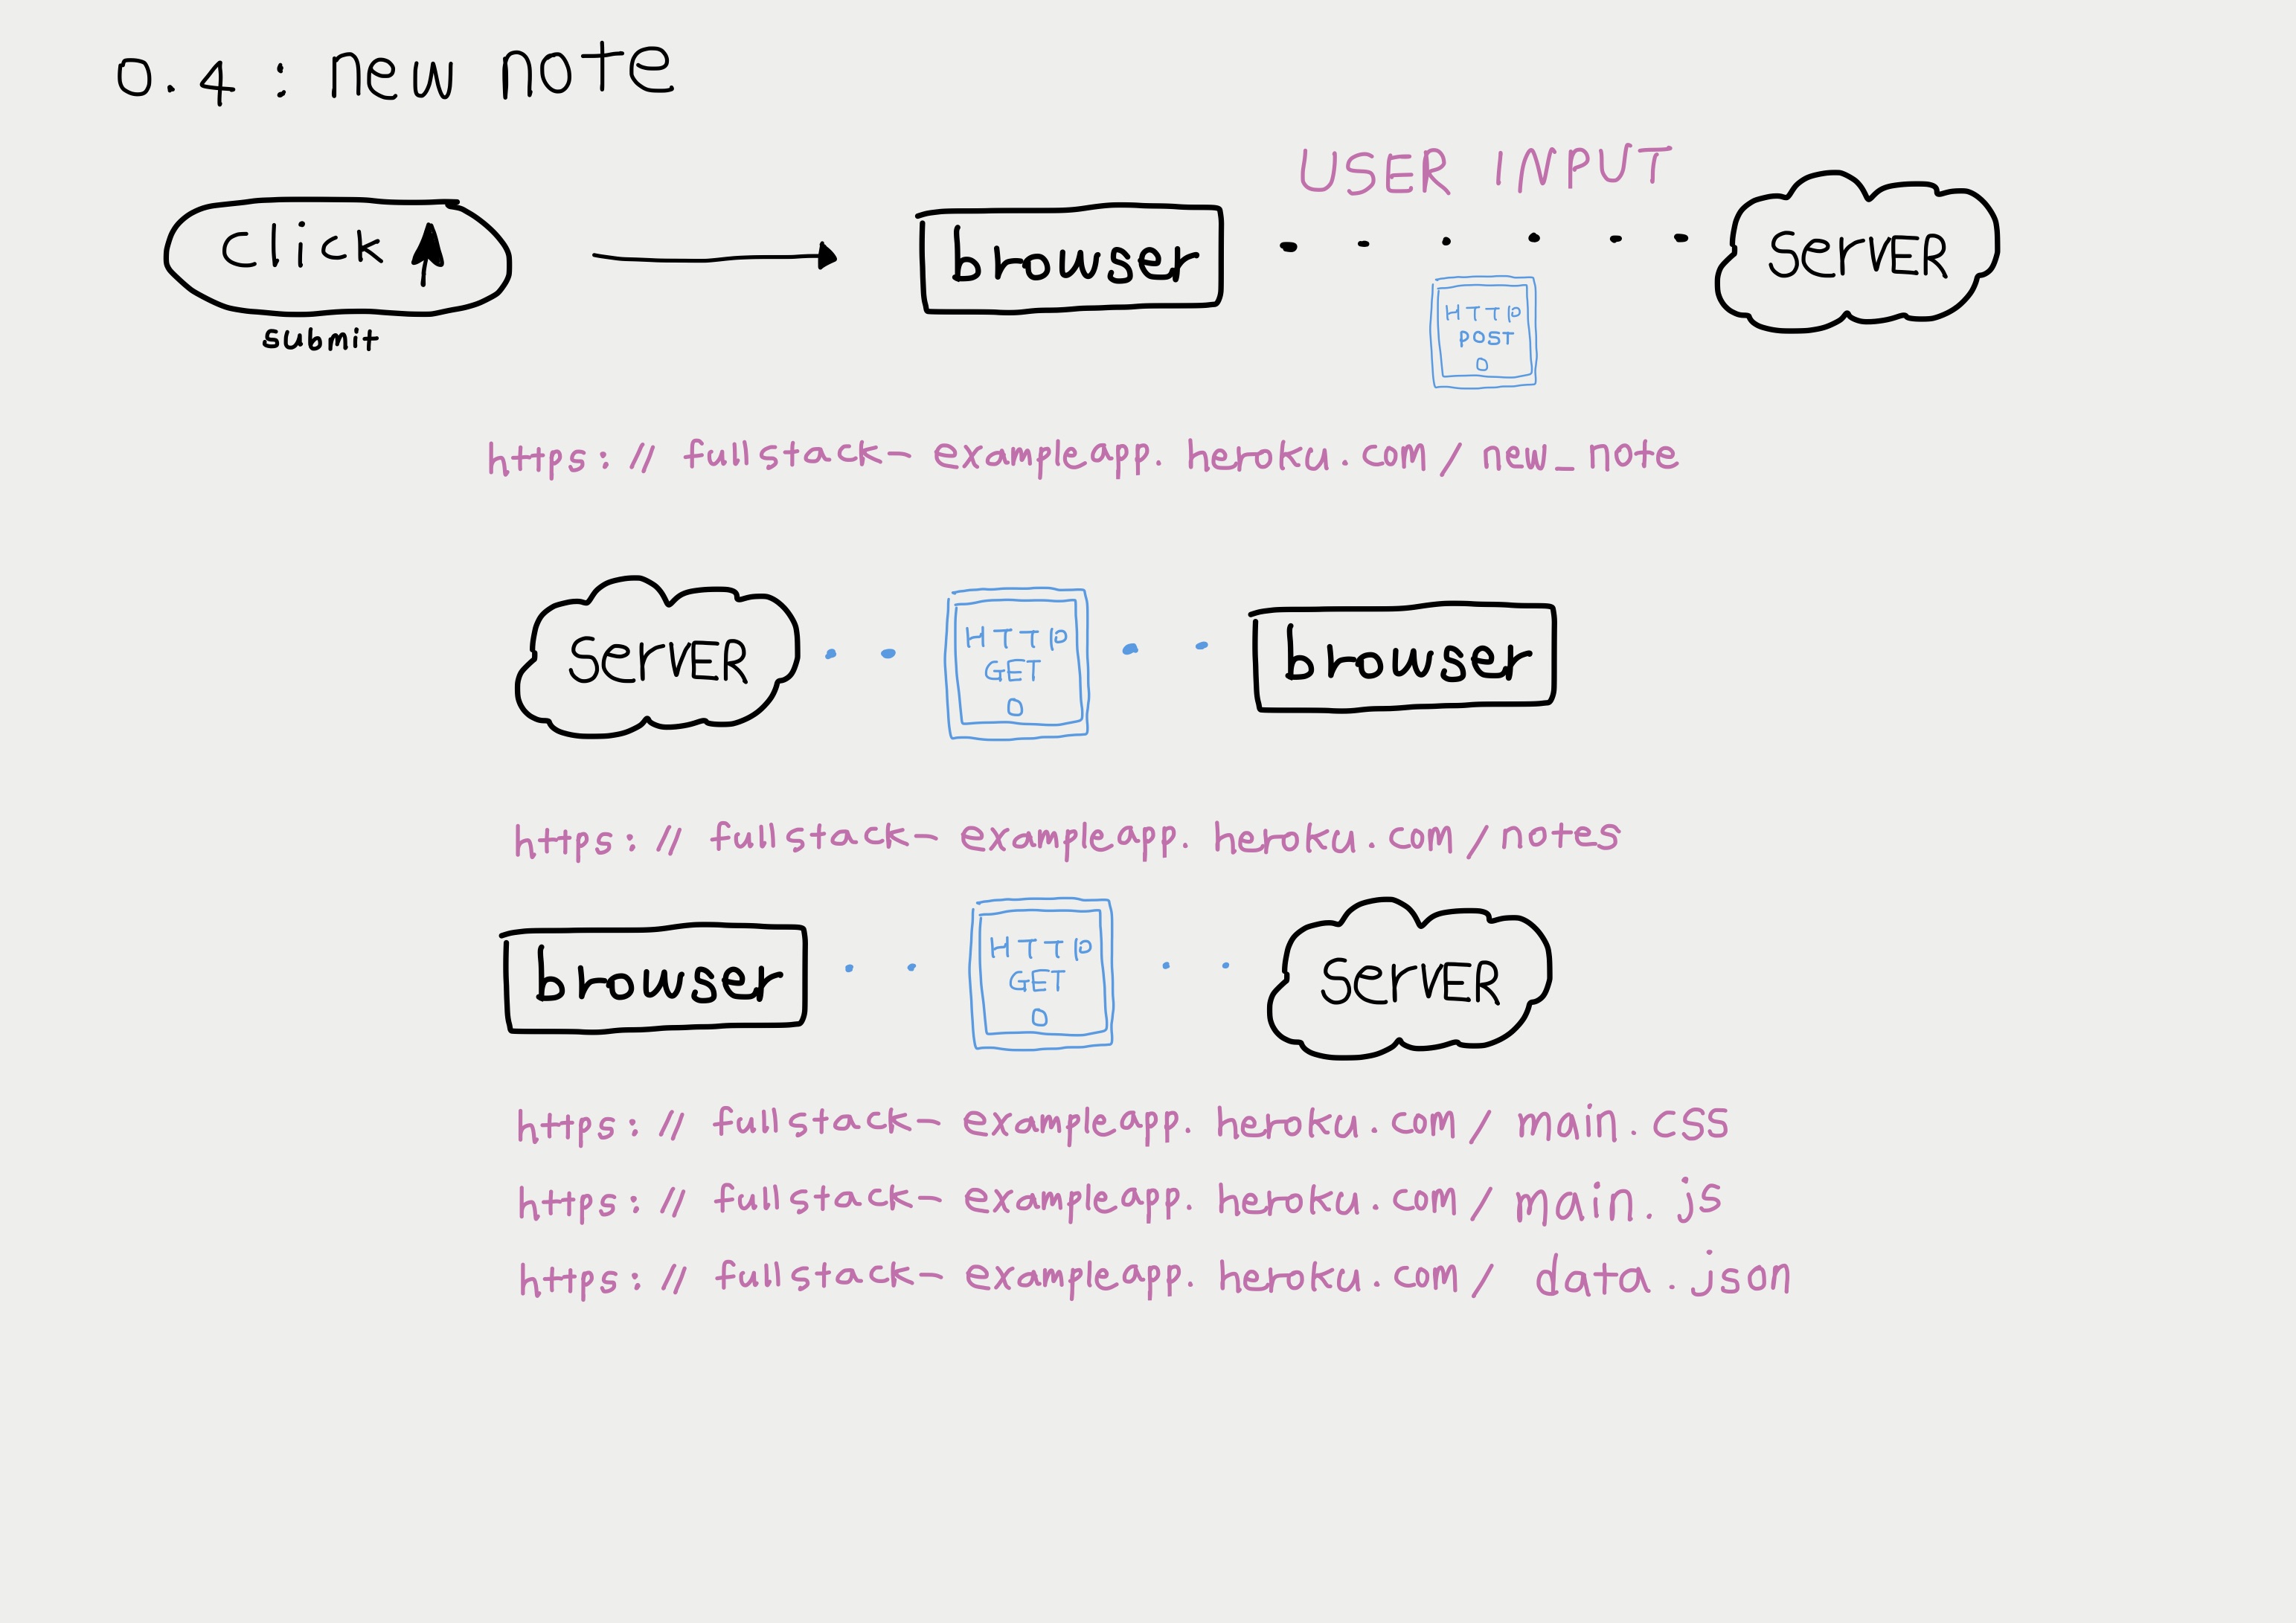 0.4 : new note
USER INPUT
click
browser
SerVER
submit
HTTP
POST
https://fullstack-exampleapp.heroku.com/new_note
SerVER
HTTP
GET
browser
https://fullstack-exampleapp.heroku.com/notes
browser
HTTP
GET
SerVER
https://fullstack-exampleapp.heroku.com/main.css
https://fullstack-exampleapp.heroku.com/main.js
https://fullstack-exampleapp.heroku.com/data.json